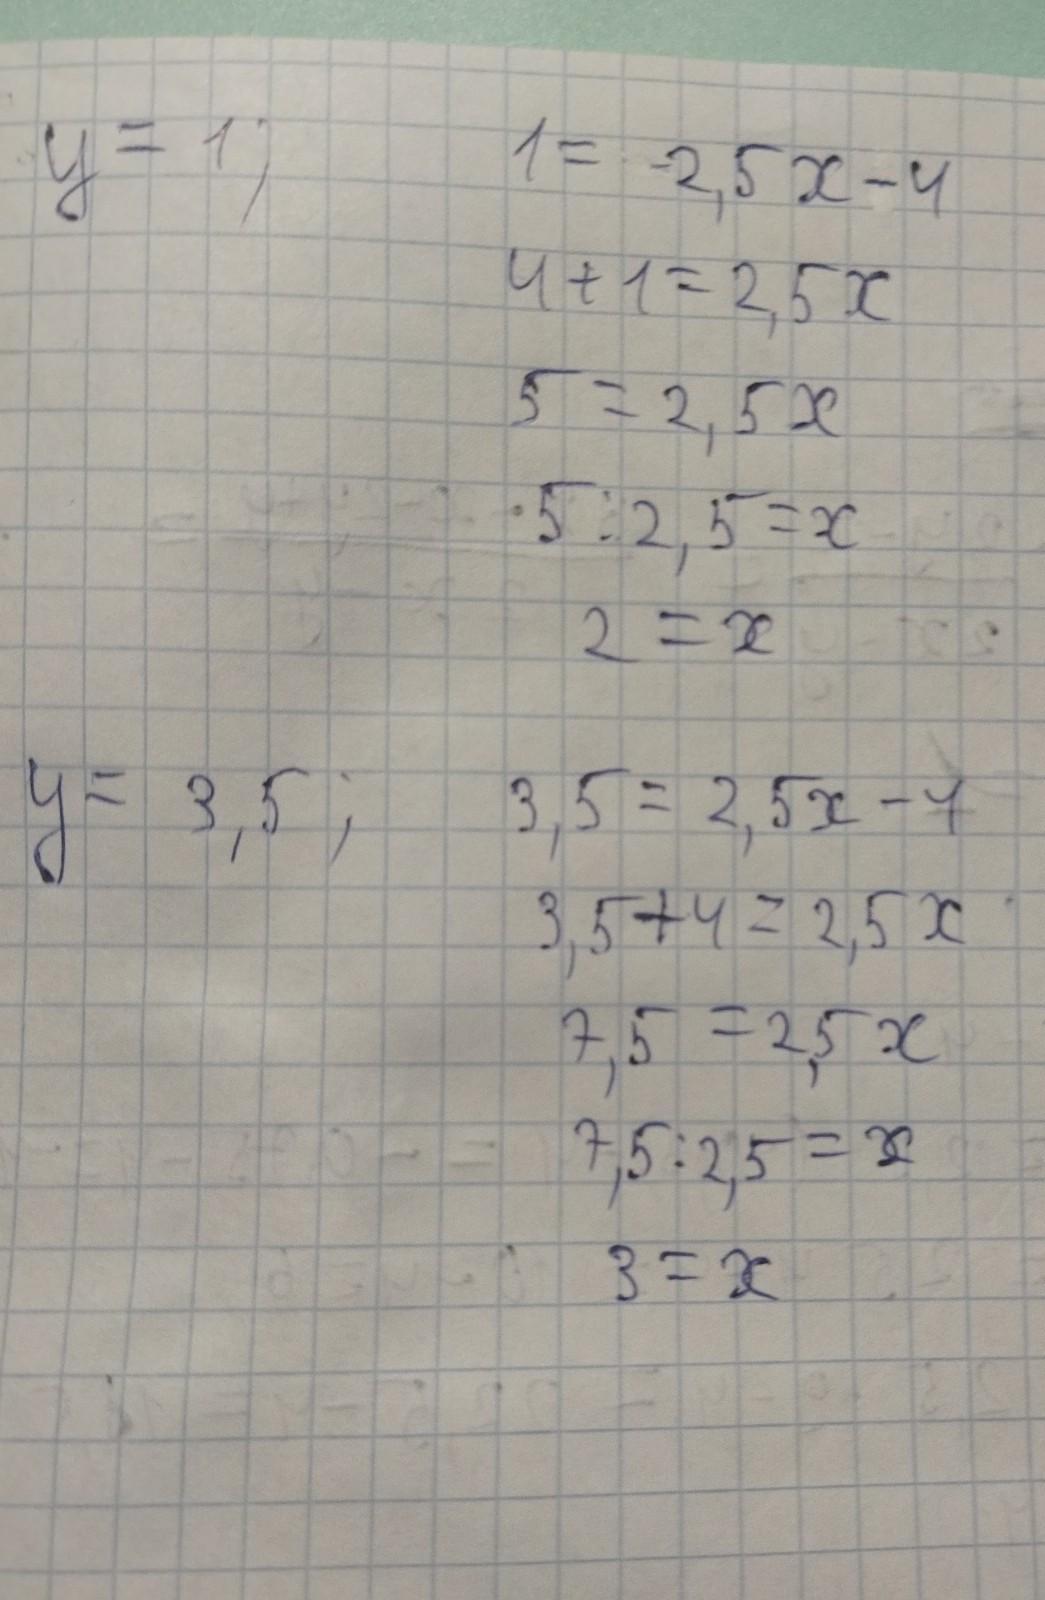 y = 1; 1 = -2,5x - 4
4 + 1 = 2,5x
5 = 2,5x
5 : 2,5 = x
2 = x
y = 3,5; 3,5 = 2,5x - 4
3,5 + 4 = 2,5x
7,5 = 2,5x
7,5 : 2,5 = x
3 = x